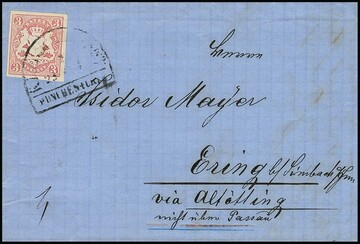 3 3
BAYERN
3 3
MÜNCHEN
Herrn
Isidor Mayer
Ering b/ Simbach a/Inn
via Altötting
nicht über Passau